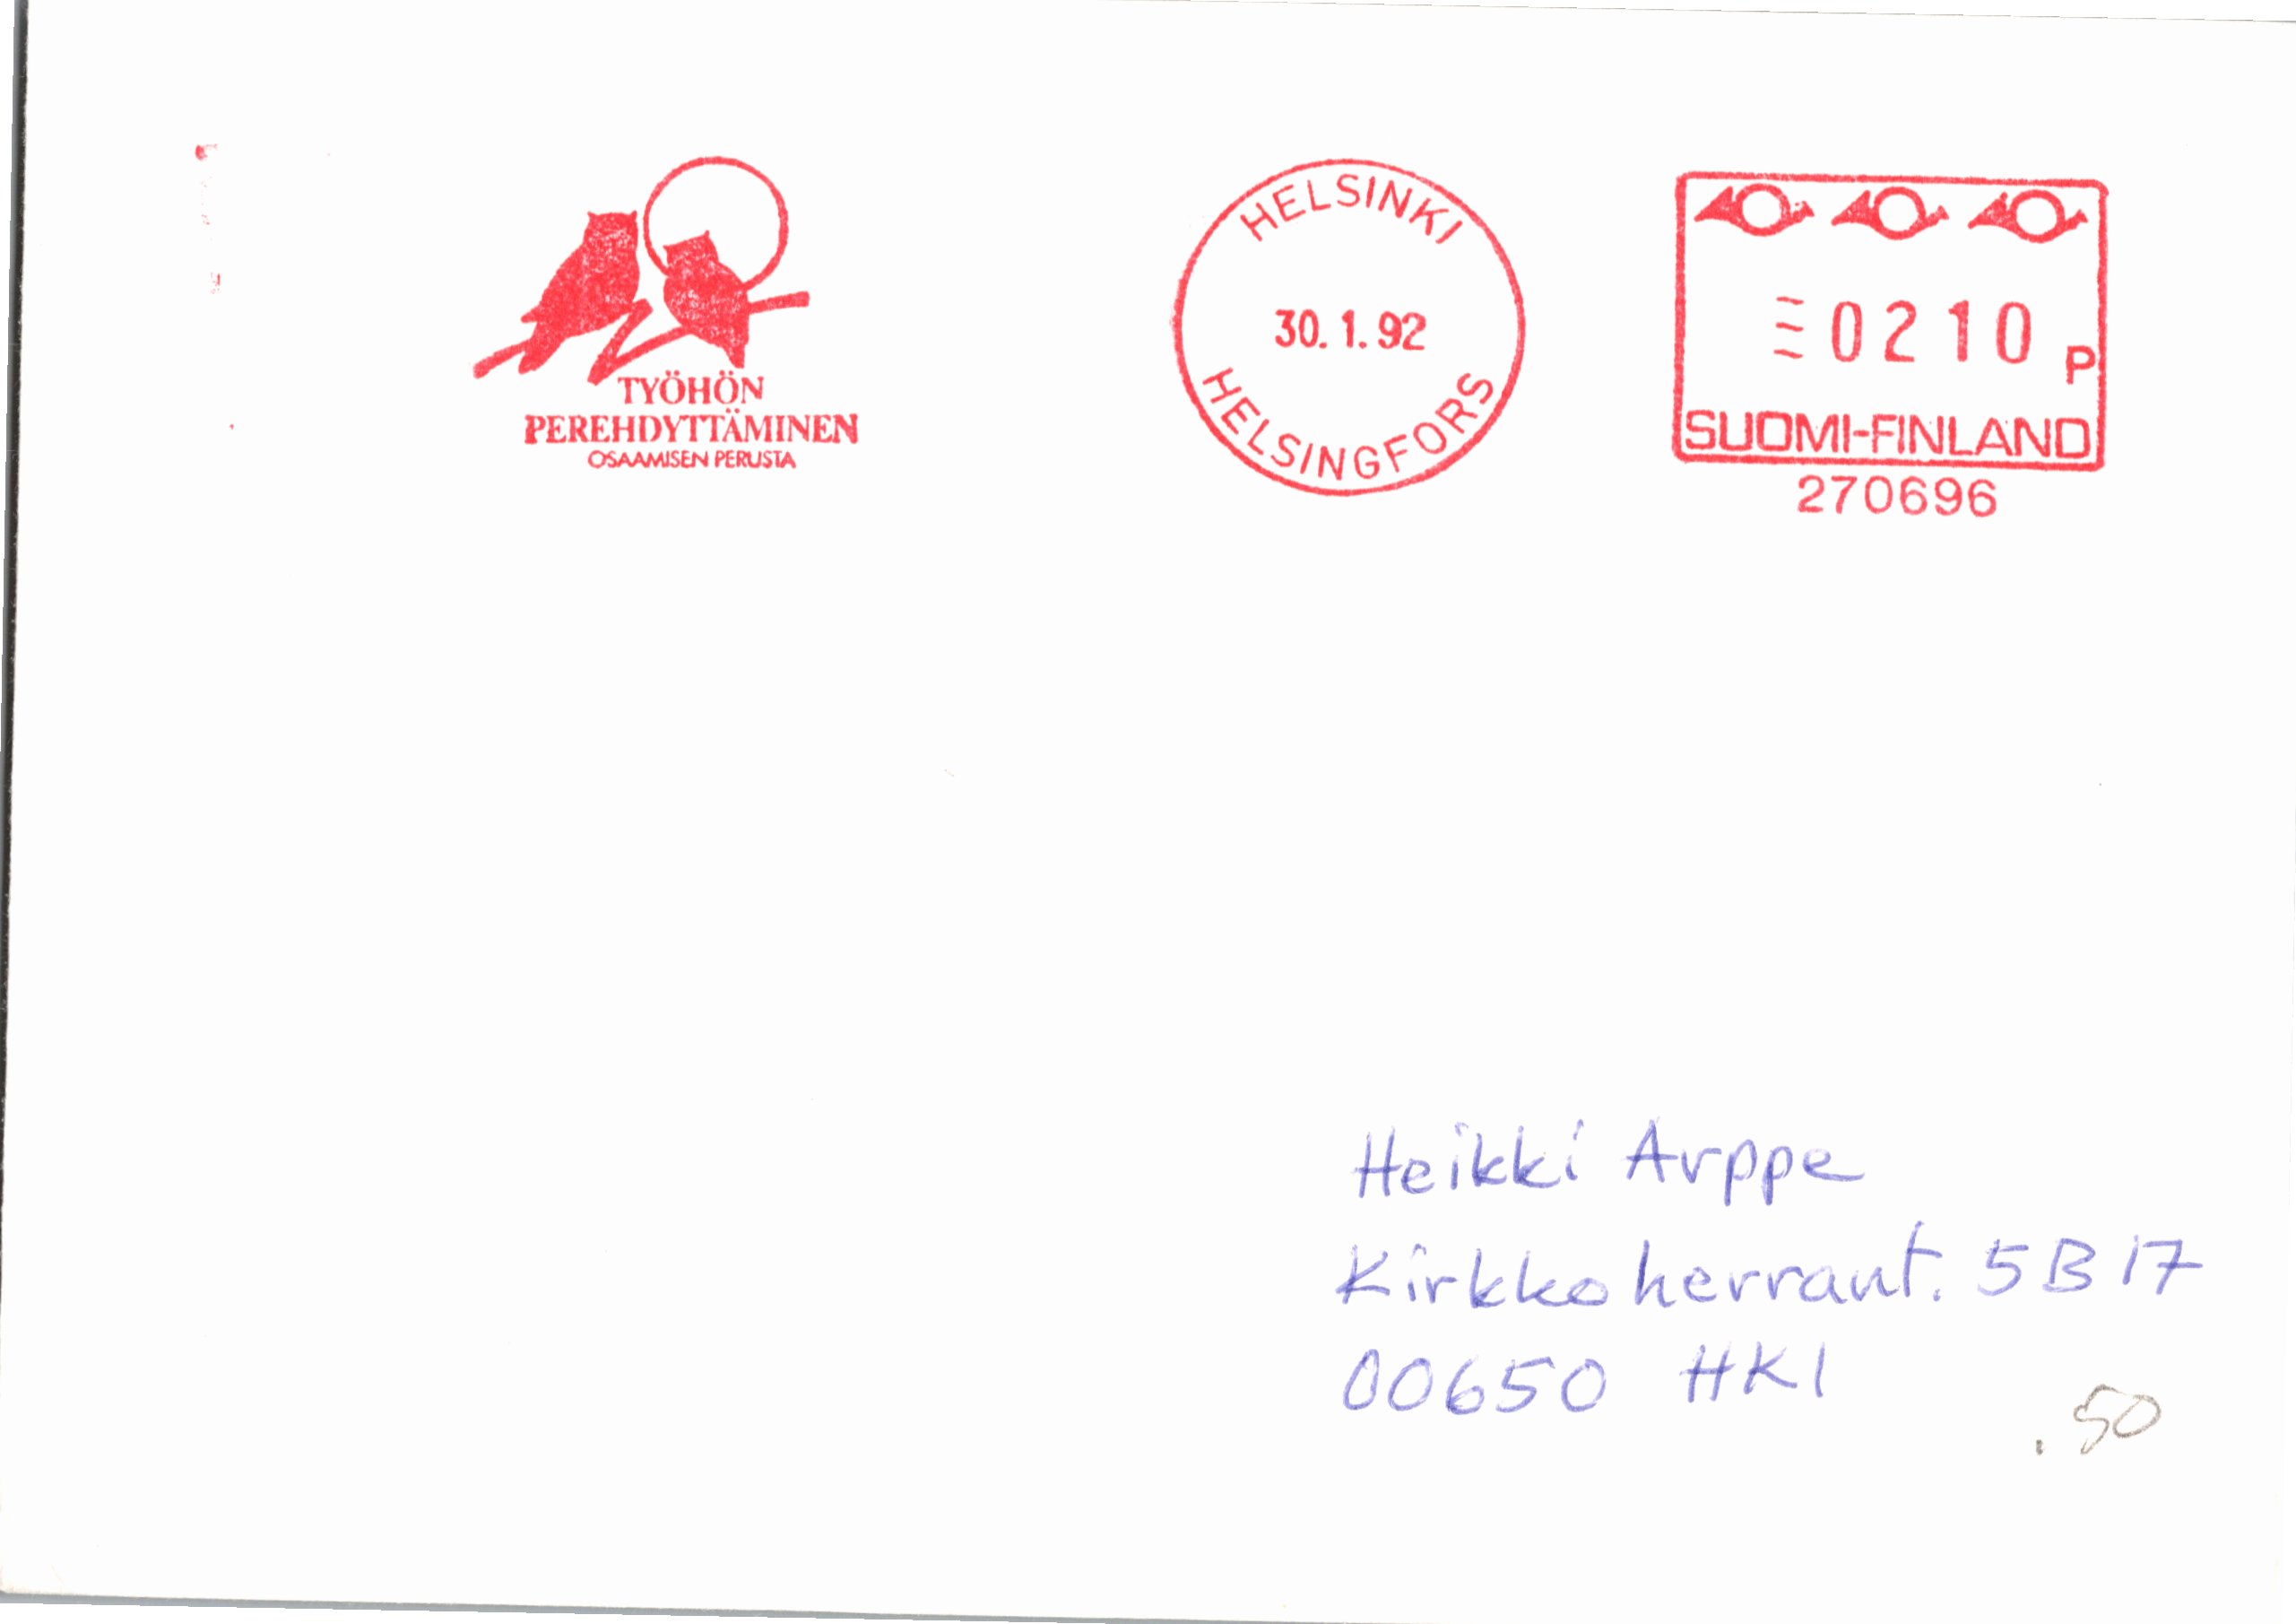 TYÖHÖN
PEREHDYTTÄMINEN
OSAAMISEN PERUSTA
HELSINKI
30.1.92
HELSINGFORS
0210 P
SUOMI-FINLAND
270696
Heikki Arppe
Kirkkoherrant. 5 B 17
00650 HKI
.50